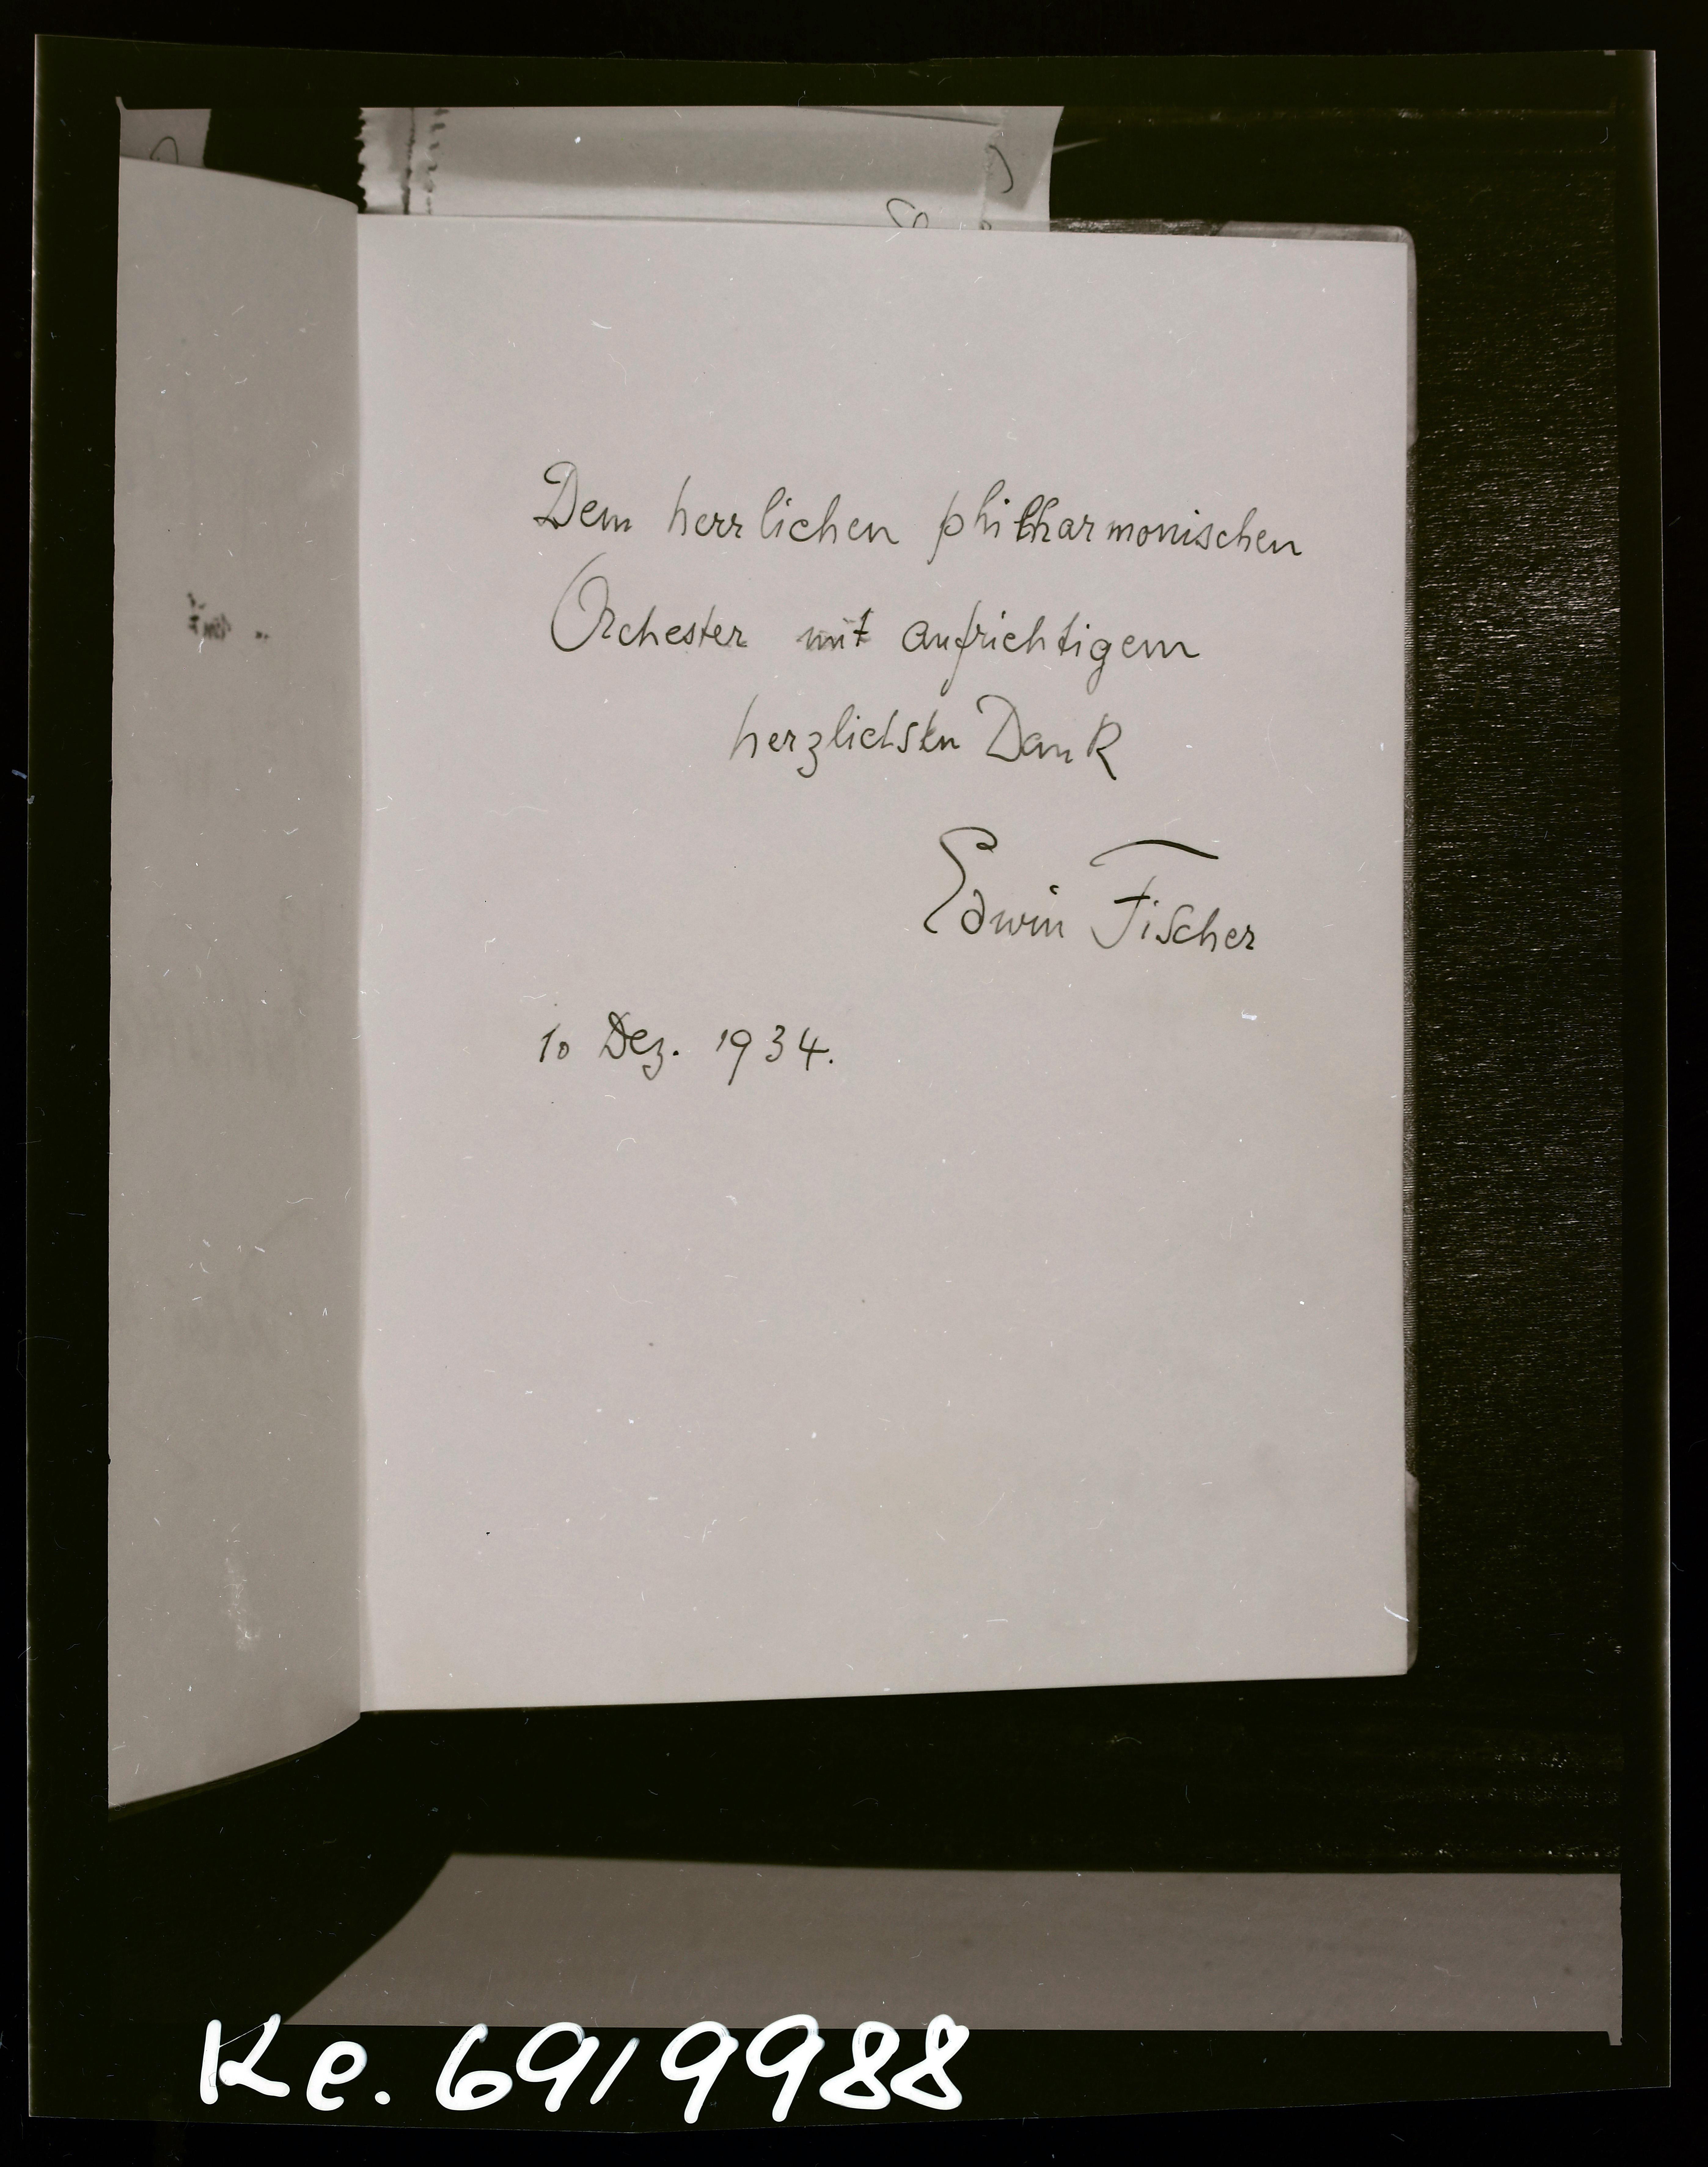 Dem herrlichen philharmonischen
Orchester mit aufrichtigem
herzlichsten Dank
Edwin Fischer
10 Dez. 1934.
Ke. 69/9988